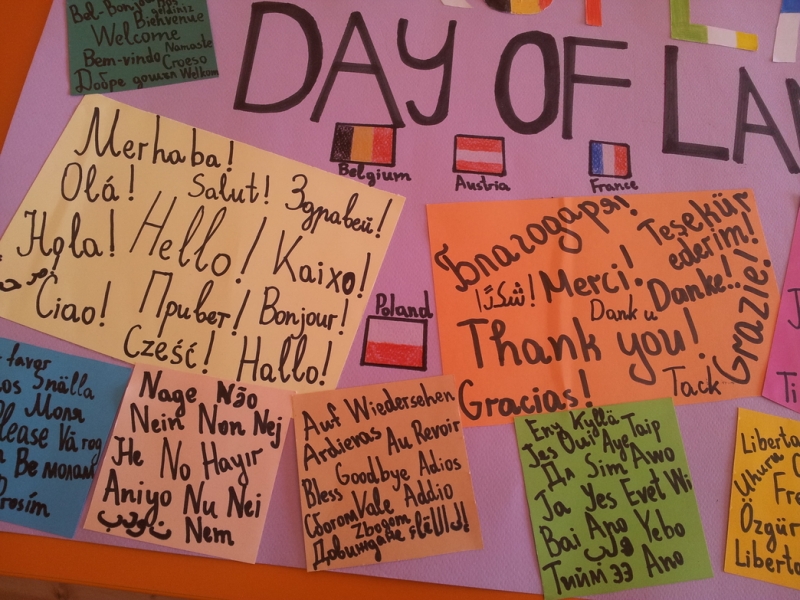 Bel-Bonjou
goldiniz
Bienvenue
Welcome
Namaste
Bem-vindo Croeso
Добре дошъл Welkom
DAY OF LAN
Belgium
Austria
France
Merhaba!
Olá! Salut! Здравей!
Hola! Hello! Kaixo!
Ciao! Привет! Bonjour!
Cześć! Hallo!
Poland
Благодаря! Teşekür
ederim!
شكرًا! Merci! Danke!
Dank u
Thank you! Grazie!
Gracias! Tack
favor
Snälla
Моля
Please Va rog
Ве молам
Prosim
Nage Não
Nein Non Nej
Не No Hayır
Aniyo Nu Nei
Nem
Auf Wiedersehen
Ardieras Au Revoir
Bless Goodbye Adios
Сбогом Vale Addio
Zbogom
Довиждане
Eny Kyllä
Jes Oui Aye Taip
Да Sim Awo
Ja Yes Evet Wi
Bai Ano Yebo
Тийм ээ Ano
Liberta
Uhuru
Fr
Özgür
Liberta